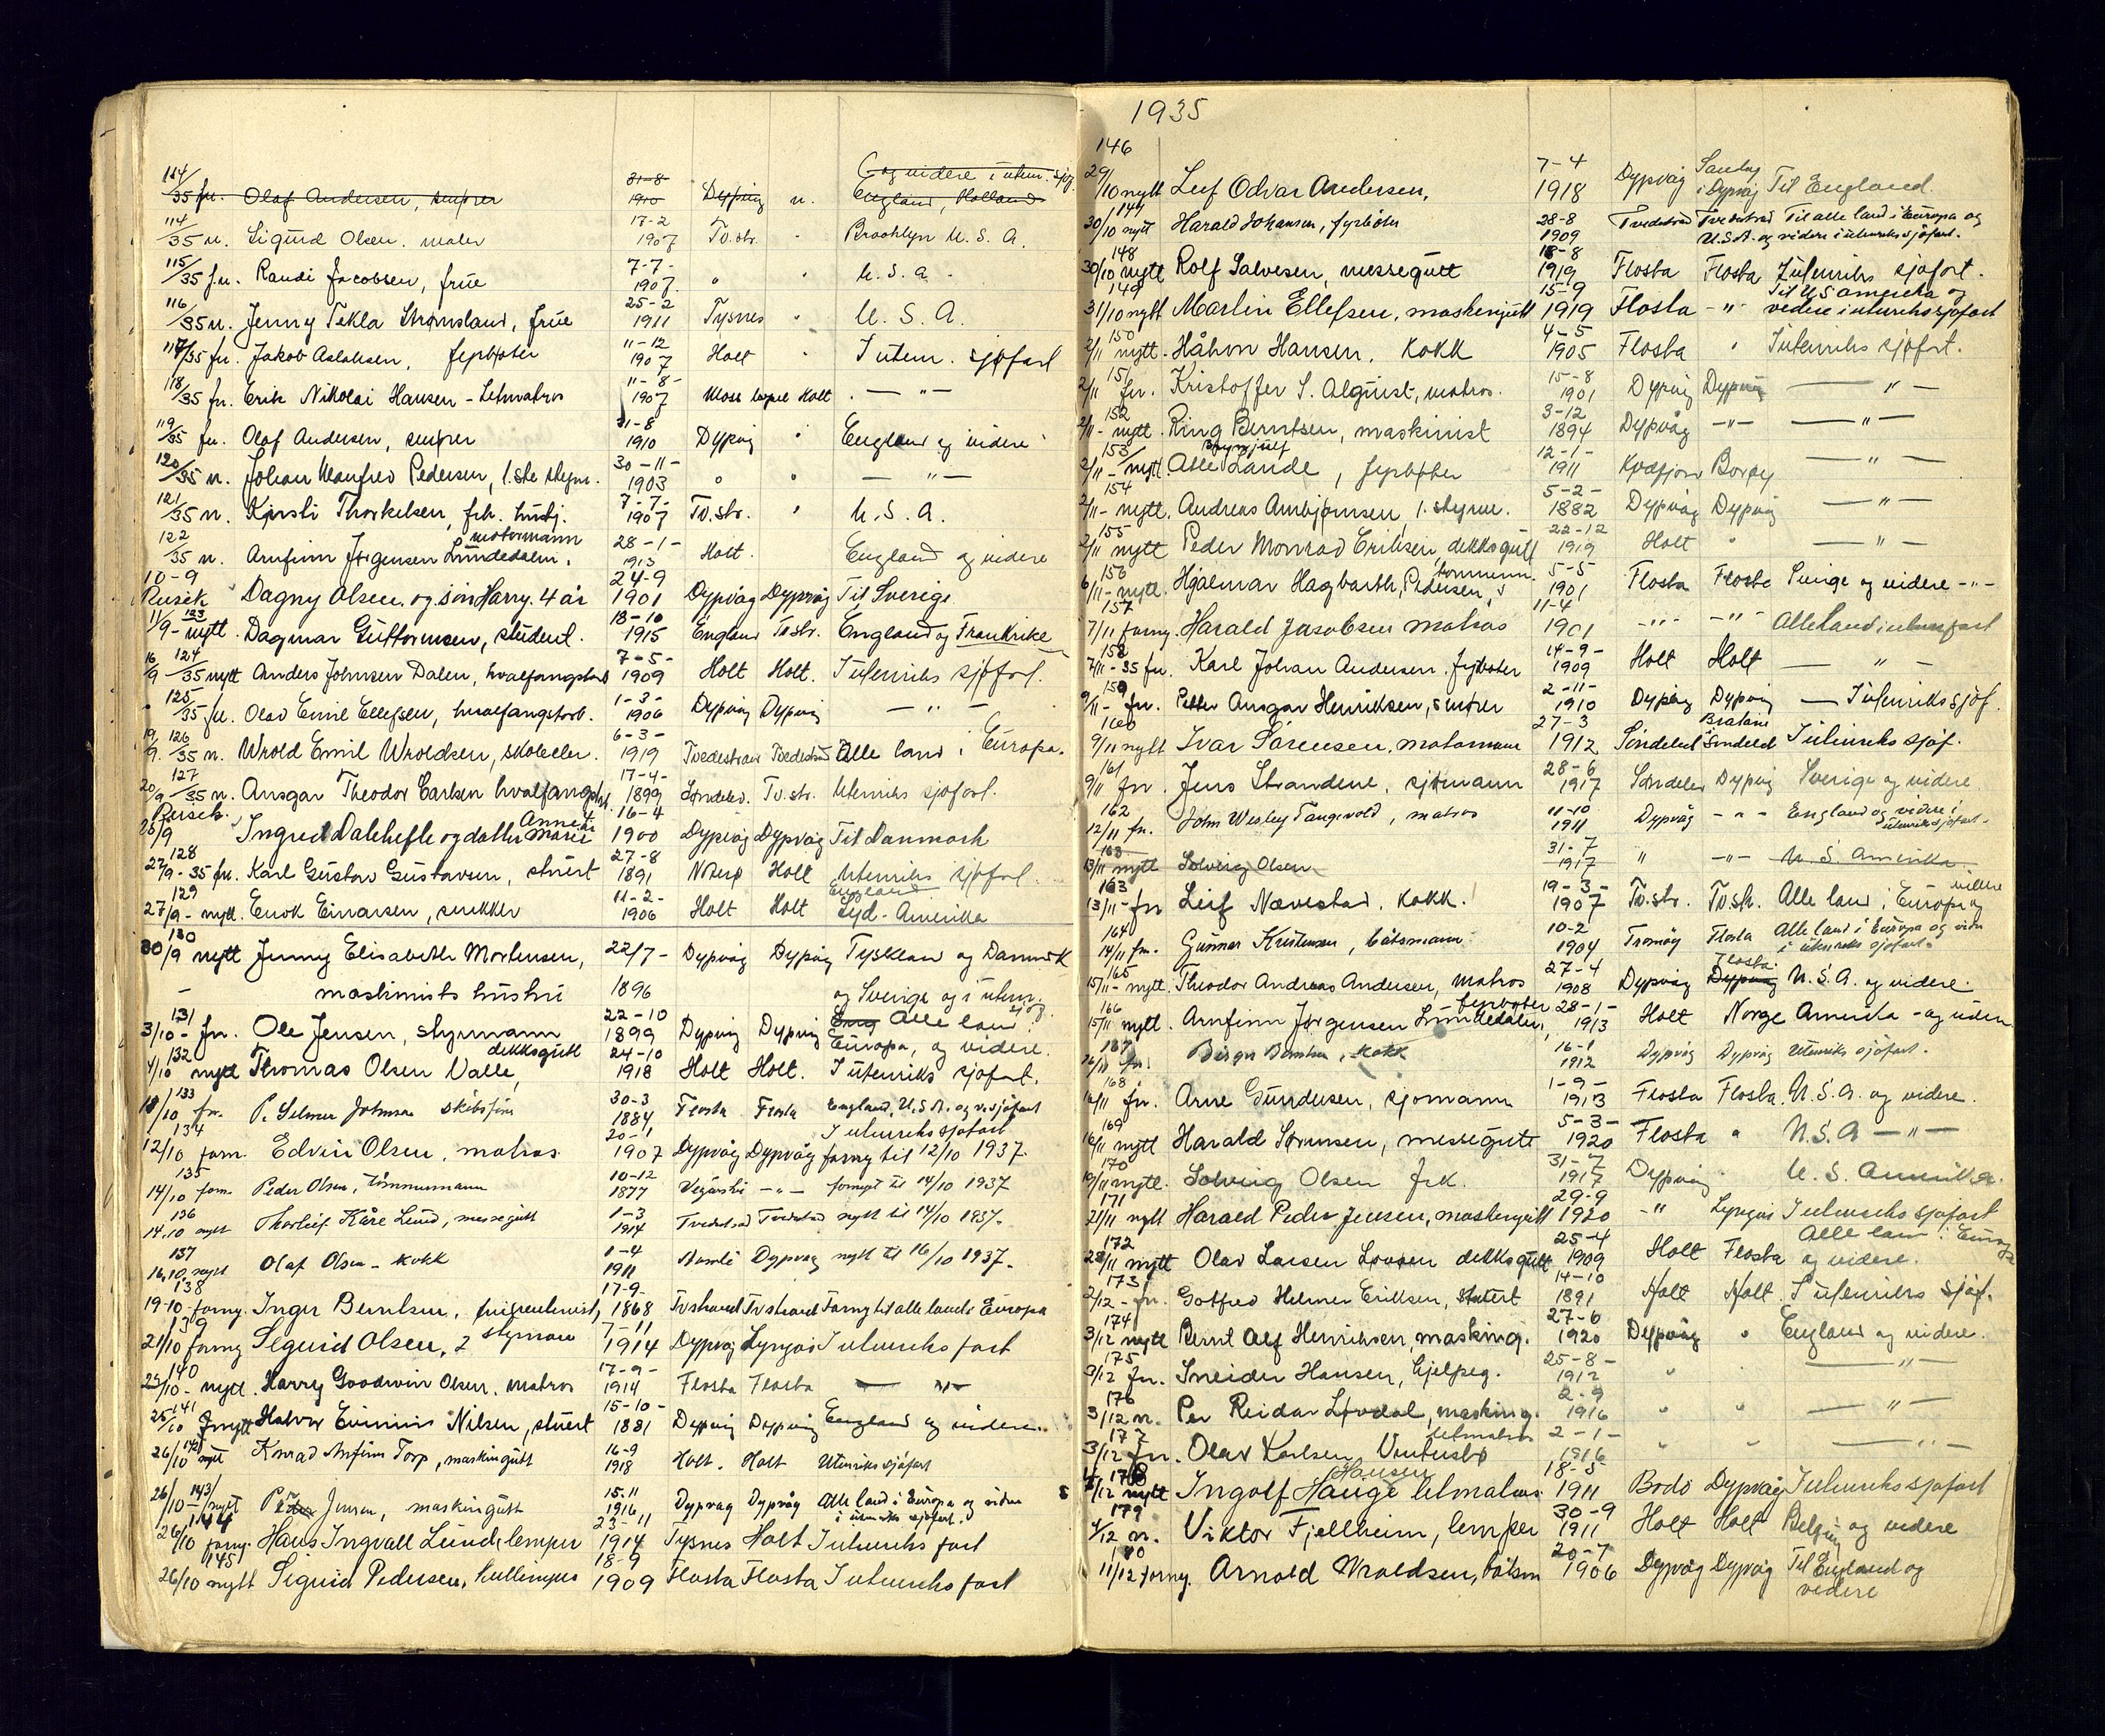 114/35 fn. Olaf Andersen, smører 31-8 1910 Dypvåg n. England, Holland og videre i uten. sjøf.
114/35 n. Sigurd Olsen. maler 17-2 1907 Tv.str. " Brooklyn U.S.A.
115/35 f.n. Randi Jacobsen, frue 7-7- 1907 " " U.S.A.
116/35 n. Jenny Tekla Strømsland, frue 25-2 1911 Tysnes " U.S.A.
117/35 fn. Jakob Aslaksen, fyrbøter 11-12 1907 Holt " I uten. sjøfart
118/35 fn. Erik Nikolai Hansen - Letmatros 11-8- 1907 Holt - " -
119/35 fn. Olaf Andersen, smører 31-8 1910 Dypvåg " England og videre
120/35 n. Johan Manfred Pedersen, 1.ste styrm. 30-11- 1903 " " - " -
121/35 n. Kirsti Thorkelsen, frk. husj. 7-7- 1907 Tv.str. " U.S.A.
122/35 n. Arnfinn Jørgensen Lundedalen, motormann 28-1- 1913 Holt. England og videre
10-9 Reisek. Dagny Olsen og sön Harry. 4 år 24-9 1901 Dypvåg Dypvåg Til Sverige
11/9- 123 nytt. Dagmar Guttormsen, student. 18-10 1915 England Tv.str. England og Frankrike
16/9 124/35 nytt Anders Johnsen Dalen, hvalfangstarb 7-5- 1909 Holt Holt. I utenriks sjøfart.
" 125/35 fn. Olav Emil Ellefsen, hvalfangstarb. 1-3- 1906 Dypvåg Dypvåg - " -
19/9. 126/35 n. Wrold Emil Wroldsen, skoleelev. 6-3- 1919 Tvedestrand Tvedestrand Alle land i Europa.
20/9 127/35 n. Ansgar Theodor Carlsen hvalfangstarb. 17-4- 1899 Søndeled. Tv.str. Utenriks sjøfart.
Reisek. 25/9 Ingrid Dalehefte og datter Anne Marie 16-4 1900 Dypvåg Dypvåg Til Danmark
128 27/9-35 fn. Karl Gustav Gustavsen, stuert 27-8 1891 Nøterø Holt Utenriks sjøfart.
129 27/9- nytt. Enok Einarsen, snekker 11-2- 1906 Holt Holt England Syd-Amerika
130 30/9 nytt Jenny Elisabeth Mortensen, 22/7- Dypvåg Dypvåg Tyskland og Danmark
- maskinists hustru 1896 og Sverige og i utenr. sjøf.
131 3/10- fn. Ole Jensen, styrmann 22-10 1899 Dypvåg Dypvåg Eng Alle land i Europa, og videre.
132 4/10 nytt Thomas Olsen Valle, dekksgutt 24-10 1918 Holt Holt. I utenriks sjøfart.
133 10/10 fn. P. Selmer Johnsen skibsfører 30-3 1884 Flosta Flosta England, U.S.A. og v. sjøfart
134 12/10 forn. Edvin Olsen, matros 20-1 1907 Dypvåg Dypvåg I utenriks sjøfart forny til 12/10 1937.
135 14/10 forn. Peder Olsen, tömmermann 10-12 1877 Vegårshei - " - fornyet til 14/10 1937
136 14.10 nytt Thorleif Kåre Lund, messegutt 1-3 1914 Tvedestrand Tvedestrand nytt til 14/10 1937.
137 16.10 nytt Olaf Olsen - kokk 1-4 1911 Bamle Dypvåg nytt til 16/10 1937.
138 19-10- forny. Inger Berntsen, 17-9- 1868 Tvstrand Tvstrand Forny til alle land i Europa
139 21/10 forny Sigurd Olsen, 2 styrman 7-11 1914 Dypvåg Lyngör I utenriks fart
140 25/10- nytt. Harry Goodwin Olsen. matros 17-9- 1914 Flosta Flosta - " -
141 25/10 nytt Halvor Nilsen, stuert 15-10- 1881 Dypvåg Dypvåg England og videre.
142 26/10 nytt Konrad Arnfinn Torp, maskingutt 16-9 1918 Holt. Holt Utenriks sjøfart
143 26/10- nytt Peder Jensen, maskingutt 15.11 1916 Dypvåg Dypvåg Alle land i Europa og videre i utenriks sjøfart.
144 26/10 forny. Hans Ingvall Lund, lemper 23-11 1914 Tysnes Holt I utenriks fart
145 26/10 nytt Sigurd Pedersen, kullemper 18-9 1909 Flosta Flosta I utenriks fart
1935
146 29/10 nytt Leif Odvar Andersen, 7-4 1918 Dypvåg Sandøy i Dypvåg Til England.
147 30/10 nytt Harald Johansen, fyrbøter 28-8 1909 Tvedestrand Tvedestrand Til alle land i Europa og U.S.A. og videre i utenriks sjøfart.
148 30/10 nytt Rolf Salvesen, messegutt 18-8 1919 Flosta Flosta I utenriks sjøfart.
149 31/10 nytt Martin Ellefsen, maskingutt 15-9 1919 Flosta - " - Til U.S amerika og videre i utenriks sjøfart
150 2/11 nytt. Håkon Hansen. Kokk 4-5 1905 Flosta " I utenriks sjøfart.
151 2/11 fn. Kristoffer S. Alquist, matros. 15-8 1901 Dypvåg Dypvåg - " -
152 2/11- nytt. Ring Berntsen, maskinist 3-12 1894 Dypvåg - " - - " -
153 2/11- nytt. Atle Brynjulf Lande, fyrbøter 12-1- 1911 Kvæfjord Borøy - " -
154 2/11- nytt. Andreas Ambjørnsen, 1. styrm. 5-2- 1882 Dypvåg Dypvåg - " -
155 2/11 nytt Peder Monrad Eriksen, dekksgutt 22-12 1919 Holt " - " -
156 6/11- nytt. Hjalmar Hagbarth, Pedersen, tømmerm. 5-5 1901 Flosta Flosta Sverige og videre - " -
157 7/11 forny. Harald Jacobsen matros 11-4 1901 - " - - " - Alle land i utenr. fart
158 7/11-35 fn. Karl Johan Andersen. fyrbøter 14-9- 1909 Holt Holt - " -
159 9/11- fn. Petter Ansgar Henriksen, smører 2-11- 1910 Dypvåg Dypvåg - I utenriks sjøf.
160 9/11 nytt Ivar Sörensen, motormann 27-3 1912 Söndeled Söndeled I utenriks sjøf.
161 9/11 fn. Jens Strandene, sjømann 28-6 1917 Søndeled Dypvåg Sverige og videre
162 12/11 fn. John Wesley Tangevold, matros 11-10 1911 Dypvåg - " - England og videre i utenriks sjøfart.
163 13/11 nytt Solveig Olsen 31-7 1917 " - " - U.S. Amerika.
163 13/11- fn Leif Nævestad. Kokk. 19-3- 1907 Tv.str. Tv.str. Alle land i Europa og videre
164 14/11 fn. Gunnar Kristensen, båtsmann 10-2 1904 Tromøy Flosta Alle land i Europa og videre i utenriks sjøfart.
165 15/11- nytt. Theodor Andreas Andersen, matros 27-4 1908 Dypvåg Dypvåg Flosta U.S.A. og videre.
166 15/11 nytt. Arnfinn Jørgensen Lundedalen, fyrbøter 28-1- 1913 Holt Norge Amerika - og videre
167 16/11 fn. Birger Berntsen, kokk 16-1 1912 Dypvåg Dypvåg Utenriks sjøfart.
168 16/11 fn. Arne Gundersen, sjømann 1-9- 1913 Flosta Flosta. U.S.A. og videre.
169 16/11 nytt Harald Sørensen, messegutt 5-3- 1920 Flosta " U.S.A - " -
170 19/11 nytt. Solveig Olsen Frk. 31-7 1917 Dypvåg " U.S. Amerika.
171 21/11 nytt Harald Peder Jensen, maskingutt 29-9 1920 - " Lyngør I utenriks sjøfart
172 28/11 nytt Olav Larsen dekksgutt 25-4 1909 Holt Flosta Alle land i Europa og videre.
173 2/12- fn. Gotfred Helmer Eriksen, stuert 14-10 1891 Holt Holt. I utenriks sjøf.
174 3/12 nytt Bernt Alf Henriksen, masking. 27-6 1920 Dypvåg " England og videre.
175 3/12 fn. Sneider Hansen, hjelpeg. 25-8- 1912 " " - " -
176 3/12 n. Per Reidar Løvdal, masking. 2-9 1916 " " - " -
177 3/12 fn. Olav Karlsen Vintersbø letmatros 2-1- 1916 " " - " -
178 4/12 nytt Ingolf Hansen Hauge letmatros 18-5 1911 Bodö Dypvåg I utenriks sjøfart
179 4/12 n. Viktor Fjellheim, lemper 30-9 1911 Holt Holt Belgien og videre
180 11/12 forny. Arnold Wroldsen, båtsm 20-7 1906 Dypvåg Dypvåg Til England og videre